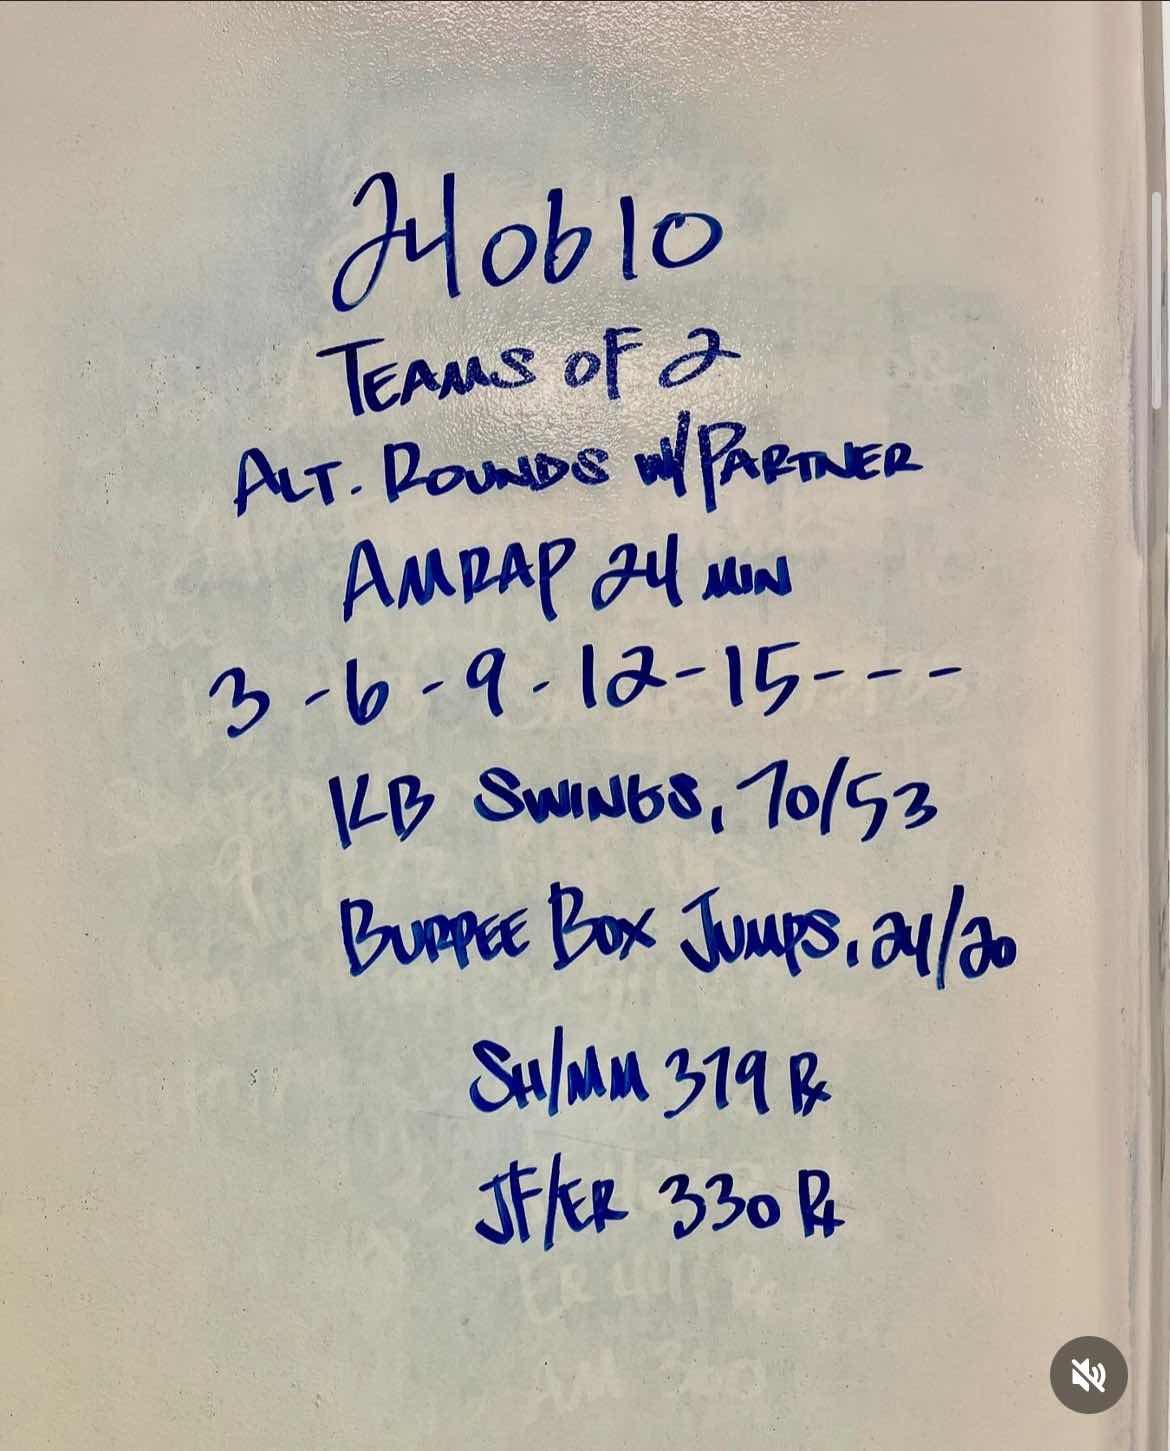 240610
TEAMS OF 2
ALT. ROUNDS W/PARTNER
AMRAP 24 MIN
3 - 6 - 9 - 12 - 15 - - -
KB SWINGS, 70/53
BURPEE BOX JUMPS, 24/20
SH/MM 379 Rx
JF/ER 330 Rx